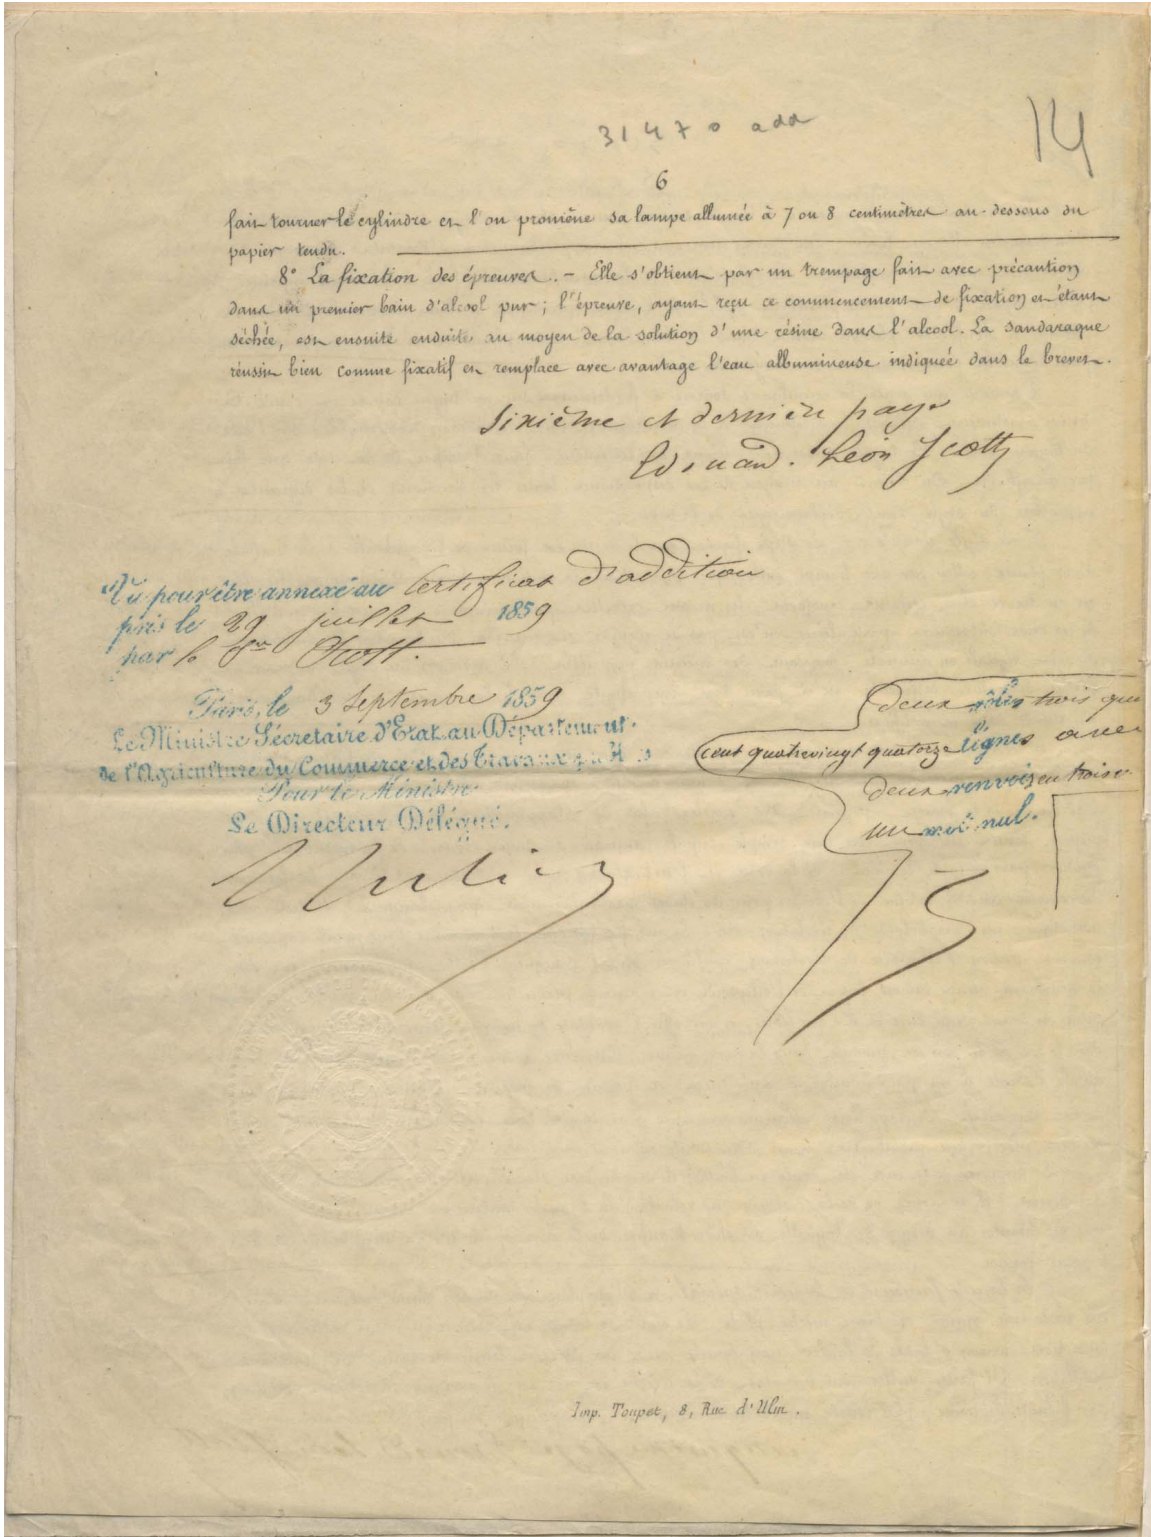 31470 add
14
6
fait tourner le cylindre et l'on promène sa lampe allumée à 7 ou 8 centimètres au-dessous du
papier tendu.
8° La fixation des épreuves. - Elle s'obtient par un trempage fait avec précaution
dans un premier bain d'alcool pur; l'épreuve, ayant reçu ce commencement de fixation et étant
séchée, est ensuite enduite au moyen de la solution d'une résine dans l'alcool. La sandaraque
réussit bien comme fixatif et remplace avec avantage l'eau albumineuse indiquée dans le brevet.
Sixième et dernière page
Edouard. Léon Scott
Vu pour être annexé au Certificat d'addition
pris le 29 juillet 1859
par le Sr Scott.
Paris, le 3 Septembre 1859
Le Ministre Sécretaire d'Etat au Département
de l'Agriculture du Commerce et des Travaux
Pour le Ministre
Le Directeur Délégué.
deux rôles trois
cent quatrevingt quatorze lignes avec
deux renvois
un mot nul.
Imp. Toupet, 8, Rue d'Ulm.